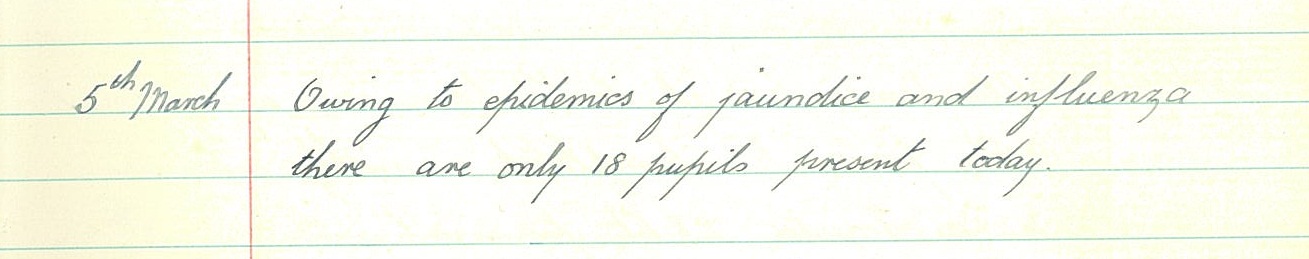 5th March Owing to epidemics of jaundice and influenza
there are only 18 pupils present today.